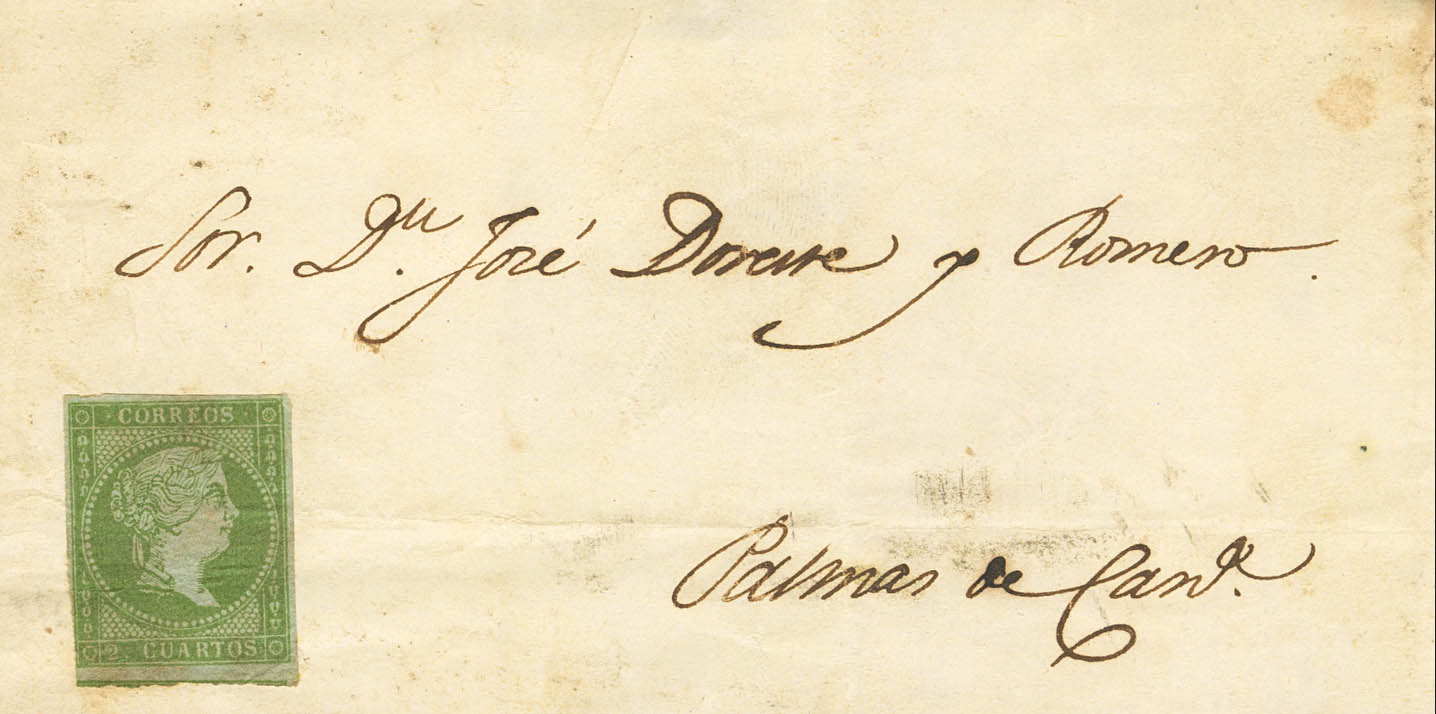 Sor. Dn. José Doreste y Romero.
CORREOS
Palmas de Canª.
2 CUARTOS